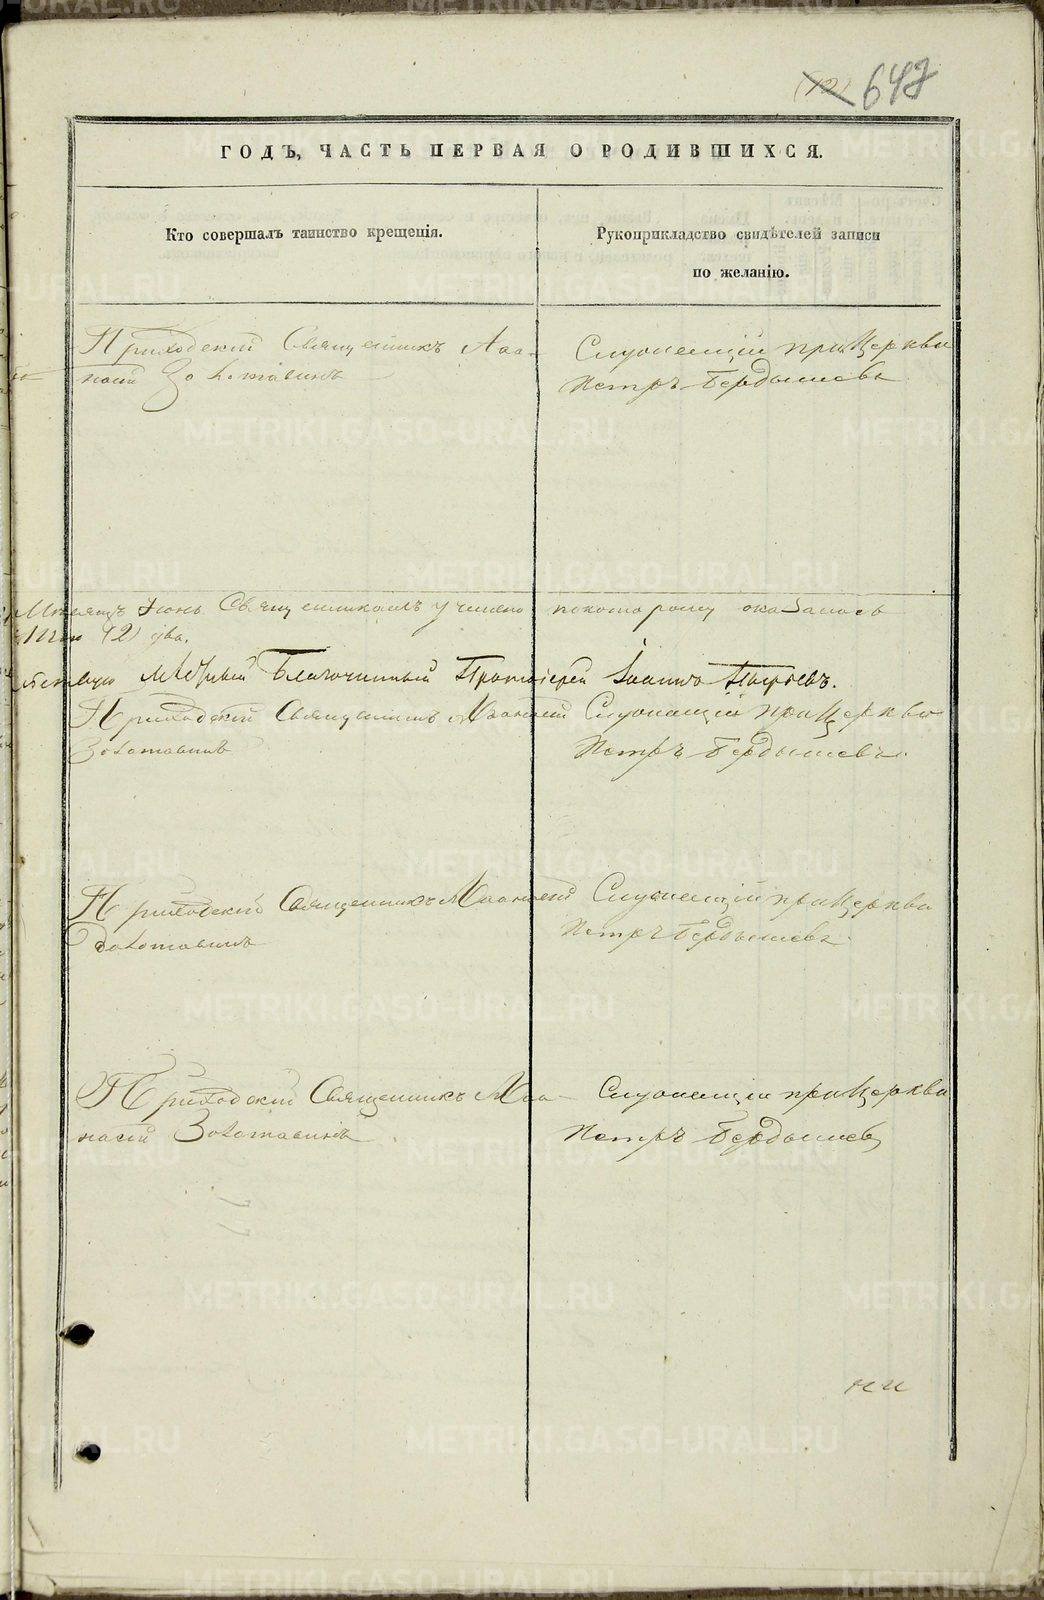 (12) 647
ГОДЪ, ЧАСТЬ ПЕРВАЯ О РОДИВШИХСЯ.
Кто совершалъ таинство крещенія.
Рукоприкладство свидѣтелей записи
по желанію.
Приходскій Священникъ Аѳа-
насій Золотавинъ
Служащій при Церкви
Петръ Бердышевъ
Мѣсяцъ Іюнь Священникомъ учинено по которому оказалось
два.
Благочинный Протоіерей Іоаннъ
Приходскій Священникъ Аѳанасій
Золотавинъ
Служащій при Церкви
Петръ Бердышевъ.
Приходскій Священникъ Аѳанасій
Золотавинъ
Служащій при Церкви
Петръ Бердышевъ.
Приходскій Священникъ Аѳа-
насій Золотавинъ
Служащій при Церкви
Петръ Бердышевъ
METRIKI.GASO-URAL.RU